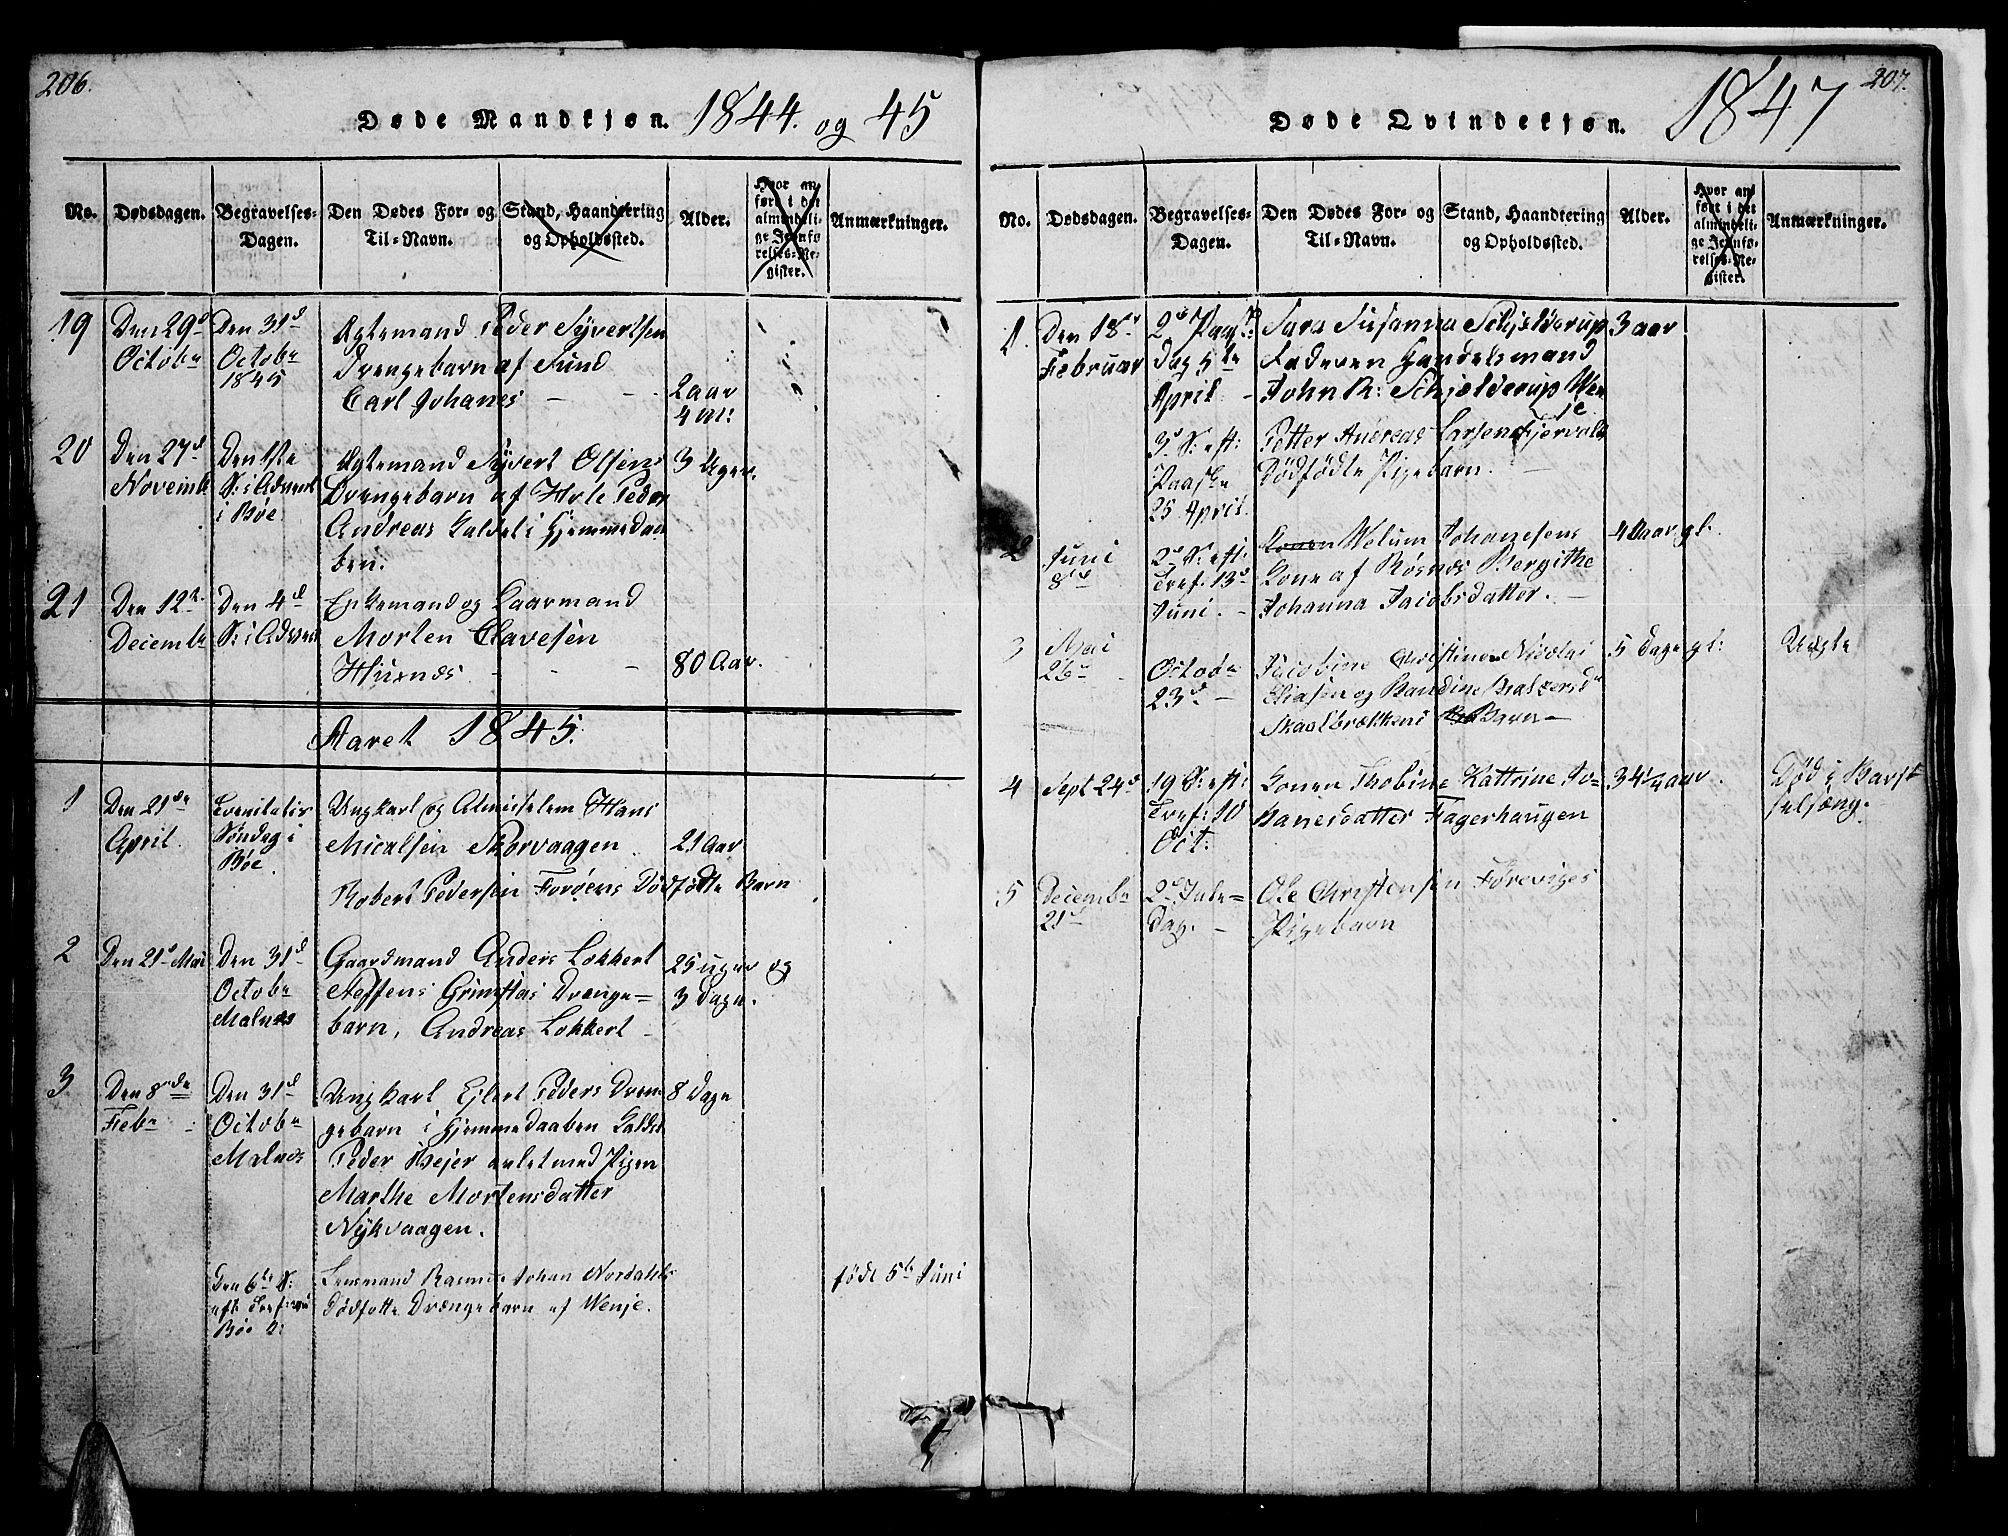 206.
Døde Mandkjøn. 1844. og 45
No.
Dødsdagen.
Begravelses-
Dagen.
Den Dødes For- og
Til-Navn.
Stand, Haandtering
og Opholdssted.
Alder.
Hvor an
ført i det
almindeli-
ge Jevnfø
relses-Re-
gister.
Anmærkninger.
19
Den 29d
Octobr
Den 31d
Octobr
1845
Ægtemand Peder Syvertsen
Drengebarn af Sund
Carl Johanes
2 aar
4 M:
20
Den 27d
Novemb
Den 1ste
S: i Advent
i Bøe
Ægtemand Syvert Olsens
Drengebarn af Hole Peder
Andreas Kaldet i Hjemmedaa
ben.
3 Uger.
21
Den 12te
Decembr
Den 4d
S: i Advent
Enkemand og Kaarmand
Morten Clavesen
80 Aar.
Aaret 1845.
1
Den 21de
April.
Trenitatis
Søndag i
Bøe.
Ungkarl og Almisselem Hans
Micalsen Skorvaagen
21 Aar
Robert Pedersen Forøens Dødfødte Barn
2
Den 21d Mai
Den 31d
Octobr
Malnes
Gaardmand Anders Lokkert
Steffens Grimstas Drenge=
barn, Andreas Lokkert
25 uger og
3 Dage.
3
Den 8nde
Febr
Den 31d
Octobr
Malnes
Ungkarl Ejlert Peders Dren
gebarn i Hjemmedaaben Kaldet
Peder Bejer avlet med Pigen
Marthe Mortensdatter
Nykvaagen.
8 Dage
Den 6te S:
eft Tref
Bøe
Lensmand Rasmus Johan Nordahls
Dødfotte Drængebarn af Wenje.
født 5te Juni
207.
Døde Qvindekjøn. 1847
No.
Dødsdagen.
Begravelses-
Dagen.
Den Dødes For- og
Til-Navn.
Stand, Haandtering
og Opholdssted.
Alder.
Hvor an
ført i det
almindeli-
ge Jevnfø-
relses-Re-
gister.
Anmærkninger.
1.
Den 18d
Februar
2d Paaske
dag 5te
April
Sara Susanna Schjelderup
Faderen Handelsmand
John R: Schjelderup Wen
je
3 aar
3d S: eft:
Paaske
25 April.
Petter Andreas Larsen Fjervold
Dødfødte Pigebarn.
2
Juni
8de
2d S: eft:
Tref: 13d
Juni.
Konen Welum Johanesens
Kone af Røsnes Bergithe
Johanna Jacobsdatter.
4 aar gl:
3
Mai
26
Octobr
23d
Jacobine Christine Nicolai
Eliasen og Bandine Baltzersd
Skaalbrækkens Barn
5 Dage gl:
Uægte
4
Sept 24d
19 S: eft:
Tref: 10
Oct:
Konen Thobine Kattrine Jo=
hanesdatter Fagerhaugen
34 1/4 aar
Død i Bars
selsæng.
5
Decembr
21d
2d Jule=
Dag.
Ole Christensen Føreviges
Pigebarn